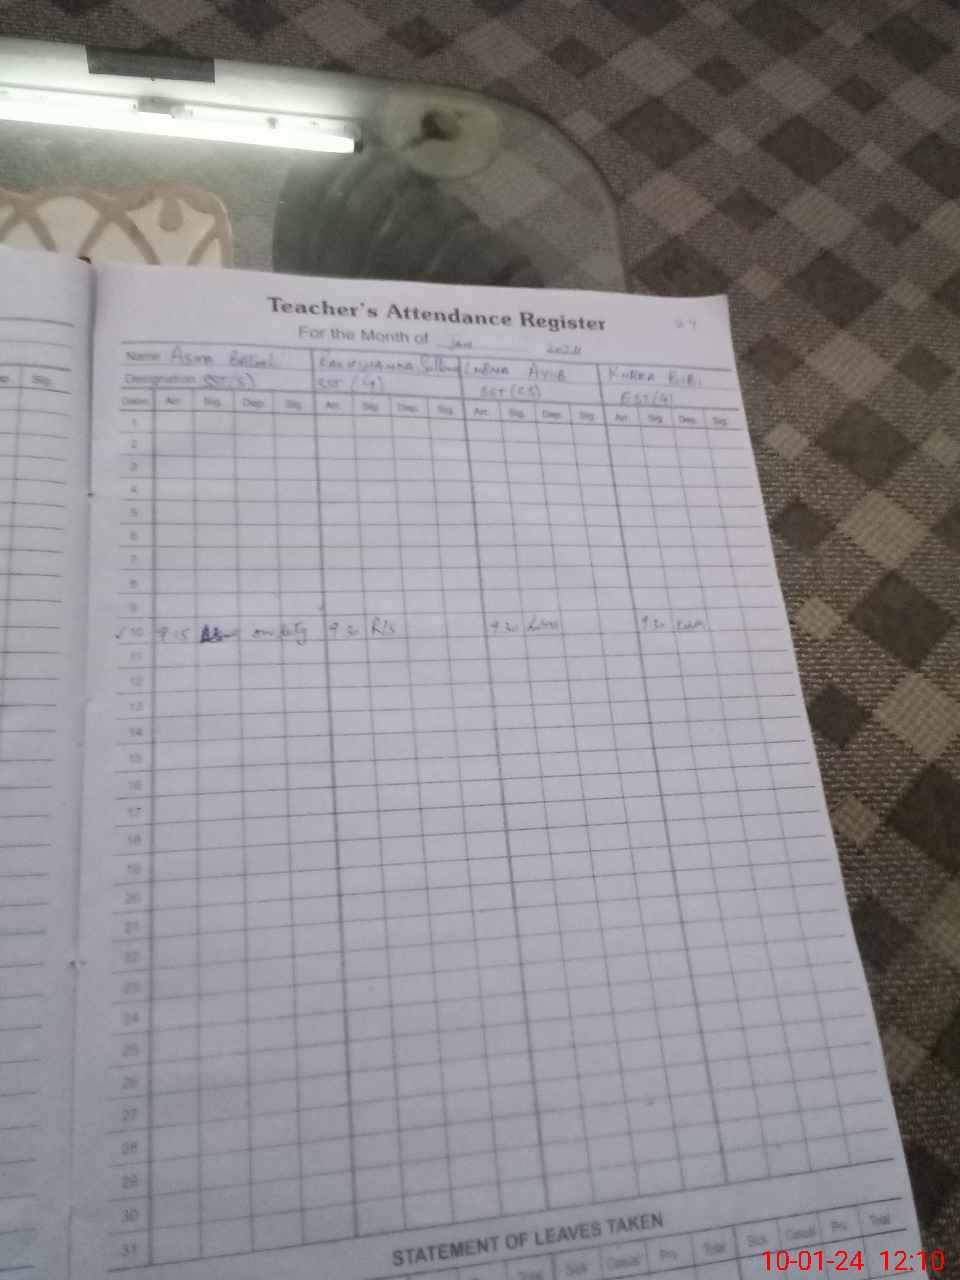 Teacher's Attendance Register
For the Month of Jan 2024
Name Asma
Designation SST (4) SST EST (4)
Sig.
Dates Arr. Sig. Dep. Sig. Arr. Sig. Dep. Sig. Arr. Sig. Dep. Sig. Arr. Sig. Dep. Sig.
1
2
3
4
5
6
7
8
9
10 9.15 on duty 9 30 R/S 9 30 9 30
11
12
13
14
15
16
17
18
19
20
21
22
23
24
25
26
27
28
29
30
31
STATEMENT OF LEAVES TAKEN
Total Sick Casual Prv. Total Sick Casual Prv. Total
10-01-24 12:10